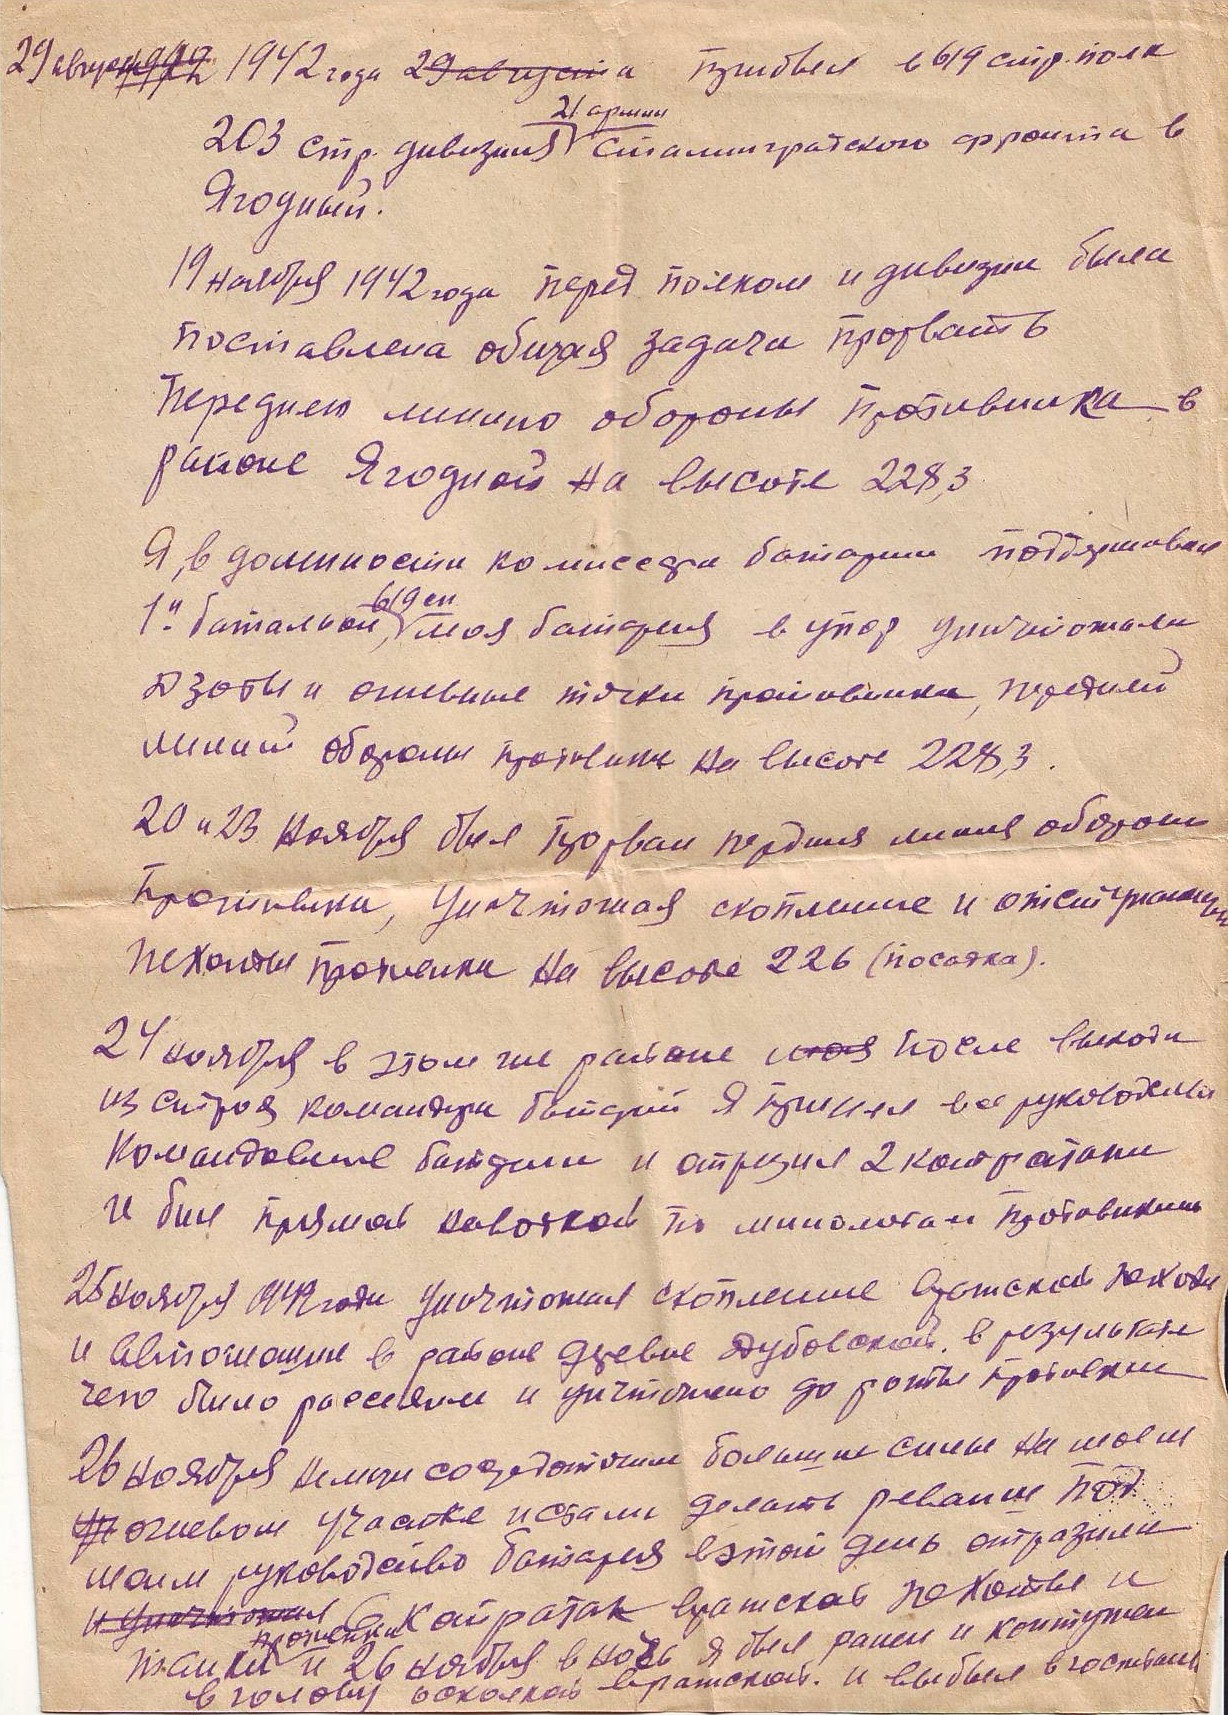 29 август 1942 1942 года 29 августа прибыл в 619 стр. полк
21 армии
203 стр. дивизия сталинградского фронта в
Ягодный.
19 ноября 1942 года перед полком и дивизии была
поставлена общая задача прорвать
переднею линию обороны противника в
районе Ягодной на высоте 228,3
Я, в должности комиссара батареи поддерживал
619 сп
1й баталион, моя батарея в упор уничтожали
дзоты и огневые точки противника, передней
линий обороны противник на высоте 228,3.
20 и 23 ноября был прорван передняя линия обороны
противника, уничтожая скопление и отступающ
пехоты противника на высоте 226 (посадка).
24 ноября в этом же районе моя после выхода
из строя командира батарей я принял все руководства
командование батареи и отразил 2 контратаки
и бил прямой наводкой по минометам противника
25 ноября 1942 года уничтожил скопление вражеской пехоты
и автомашин в районе деревне Дубовской. в результате
чего было рассеяно и уничтожено до роты противника
26 ноября немцы сосредоточили большие силы на моем
огневом участке и стали делать реванш под
моим руководство батарея в этой день отразили
и уничтожил 6 контратак вражеской пехоты и
противника
танки и 26 ноября в ночь я был ранен и контужен
в голову осколкой вражеской. и выбыл в госпиталь